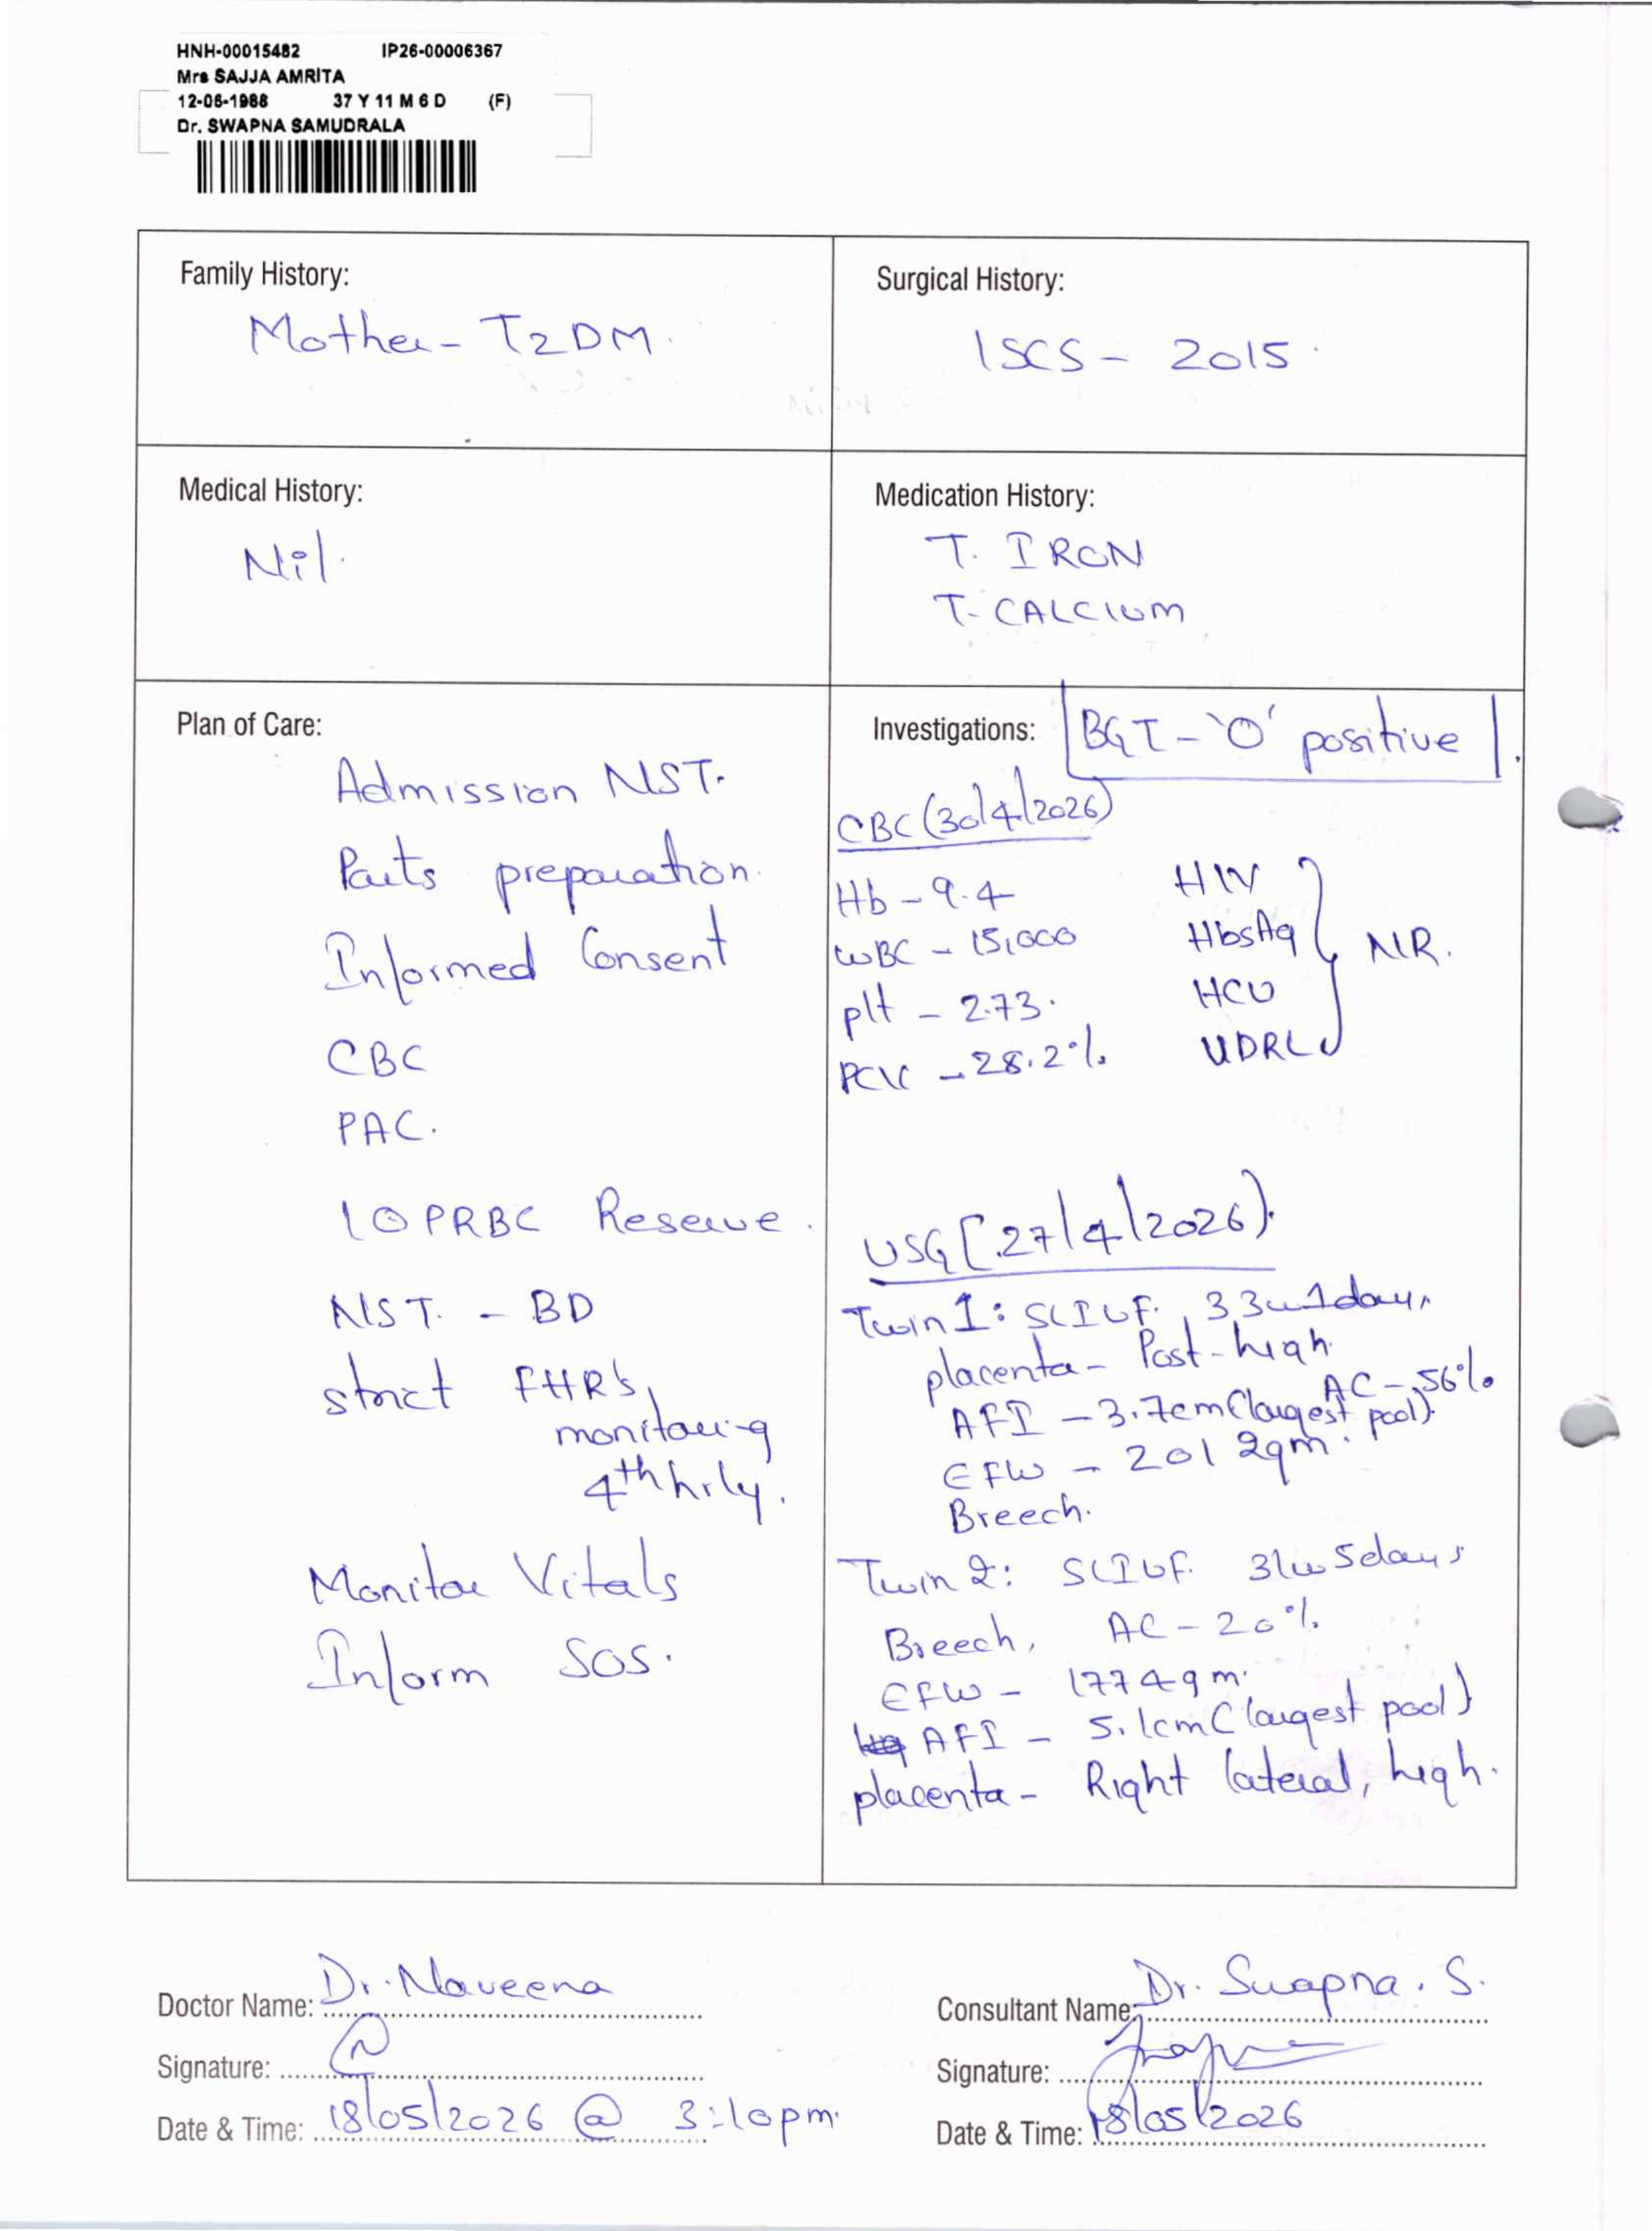 HNH-00015482 IP26-00006367
Mrs SAJJA AMRITA
12-06-1988 37 Y 11 M 6 D (F)
Dr. SWAPNA SAMUDRALA
Family History:
Mother - T2DM.
Surgical History:
LSCS - 2015.
Medical History:
Nil.
Medication History:
T. IRON
T. CALCIUM
Plan of Care:
Admission NST.
Parts preparation.
Informed Consent
CBC
PAC.
1 O PRBC Reserve.
NST. - BD
strict FHR's,
monitoring
4th hrly.
Monitor Vitals
Inform SOS.
Investigations: BGT - 'O' positive.
CBC (30/4/2026)
Hb - 9.4 HIV
WBC - 15,000 HbsAg NR.
plt - 2.73. HCV
PCV - 28.2% VDRL
USG [27/4/2026).
Twin 1: SLIUF, 33w1day,
placenta - Post - high.
AC - 56%
AFI - 3.7cm (largest pool).
EFW - 2012gm.
Breech.
Twin 2: SLIUF. 31w5days
Breech, AC - 20%.
EFW - 1774gm.
AFI - 5.1cm (largest pool)
placenta - Right lateral, high.
Doctor Name: Dr. Naveena
Signature:
Date & Time: 18/05/2026 @ 3:10pm.
Consultant Name: Dr. Swapna. S.
Signature:
Date & Time: 18/05/2026